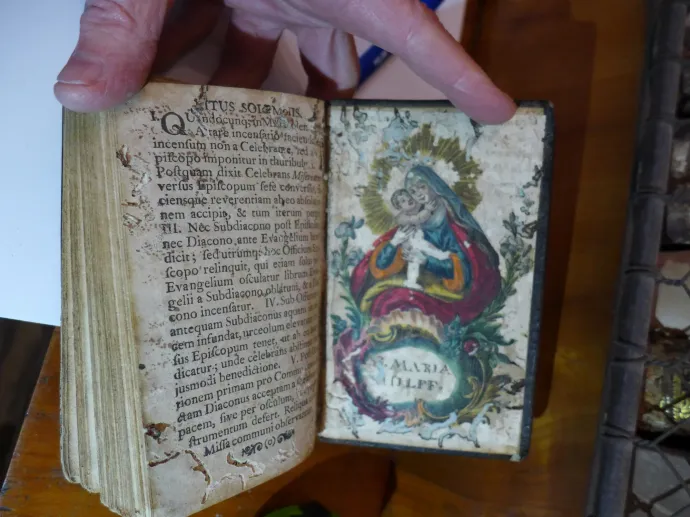 RITUS SOLEMNIS.
I. QUandocunq; in Missa
incensum non a Celebrante, sed
piscopo imponitur in thuribulum
Postquam dixit Celebrans
versus Episcopum sese
ciensque reverentiam ab eo
nem accipit, & tum iterum
III. Nec Subdiacono post
nec Diacono ante Evangelium
dicit; sed utrumq; hoc Officium
scopo relinquit, qui etiam solus
Evangelium osculatur librum
gelii a Subdiacono oblatum, & a
cono incensatur. IV. Sub
antequam Subdiaconus aquam
cem infundat, urceolum
sus Episcopum tenet,
dicatur; unde celebrans
jusmodi benedictione. V.
tionem primam pro
etiam Diaconus acceptam a
pacem, sive per osculum,
strumentum defert. Reliqua
Missa communi observantur.
(o)
S. MARIA
HILFF.